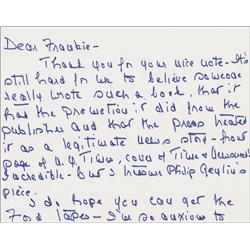 Dear Frankie-
Thank you for your nice note - It's
still hard for me to believe someone
really wrote such a book, that it
had the promotion it did from the
publisher and that the press treated
it as a legitimate news story - front
page of N.Y. Times, cover of Time & Newsweek
incredible - but I
piece.
I do hope you can get the
Ford tapes - I'm so anxious to